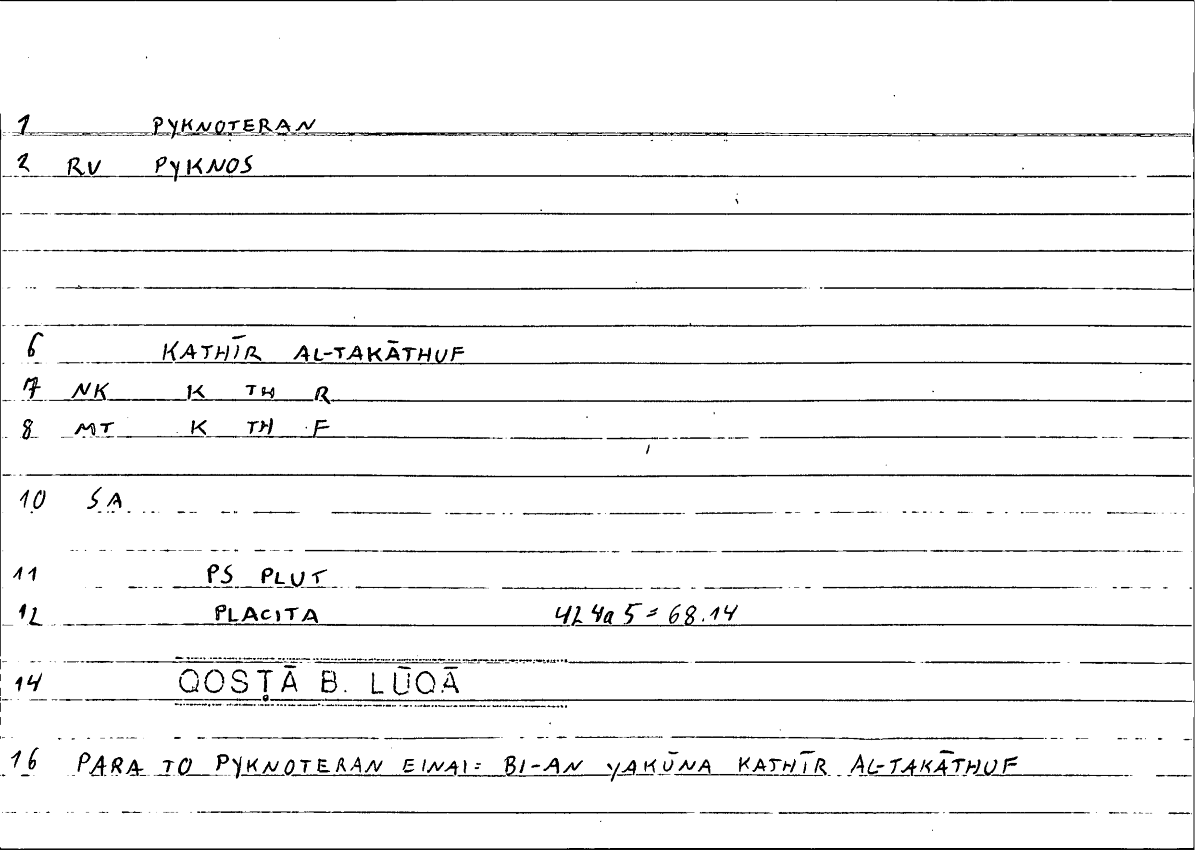 1 PYKNOTERAN
2 RV PYKNOS
6 KATHĪR AL-TAKĀTHUF
7 NK K TH R
8 MT K TH F
10 SA
11 PS PLUT
12 PLACITA 424a5=68.14
14 QOSṬĀ B. LŪQĀ
16 PARA TO PYKNOTERAN EINAI: BI-AN YAKŪNA KATHĪR AL-TAKĀTHUF